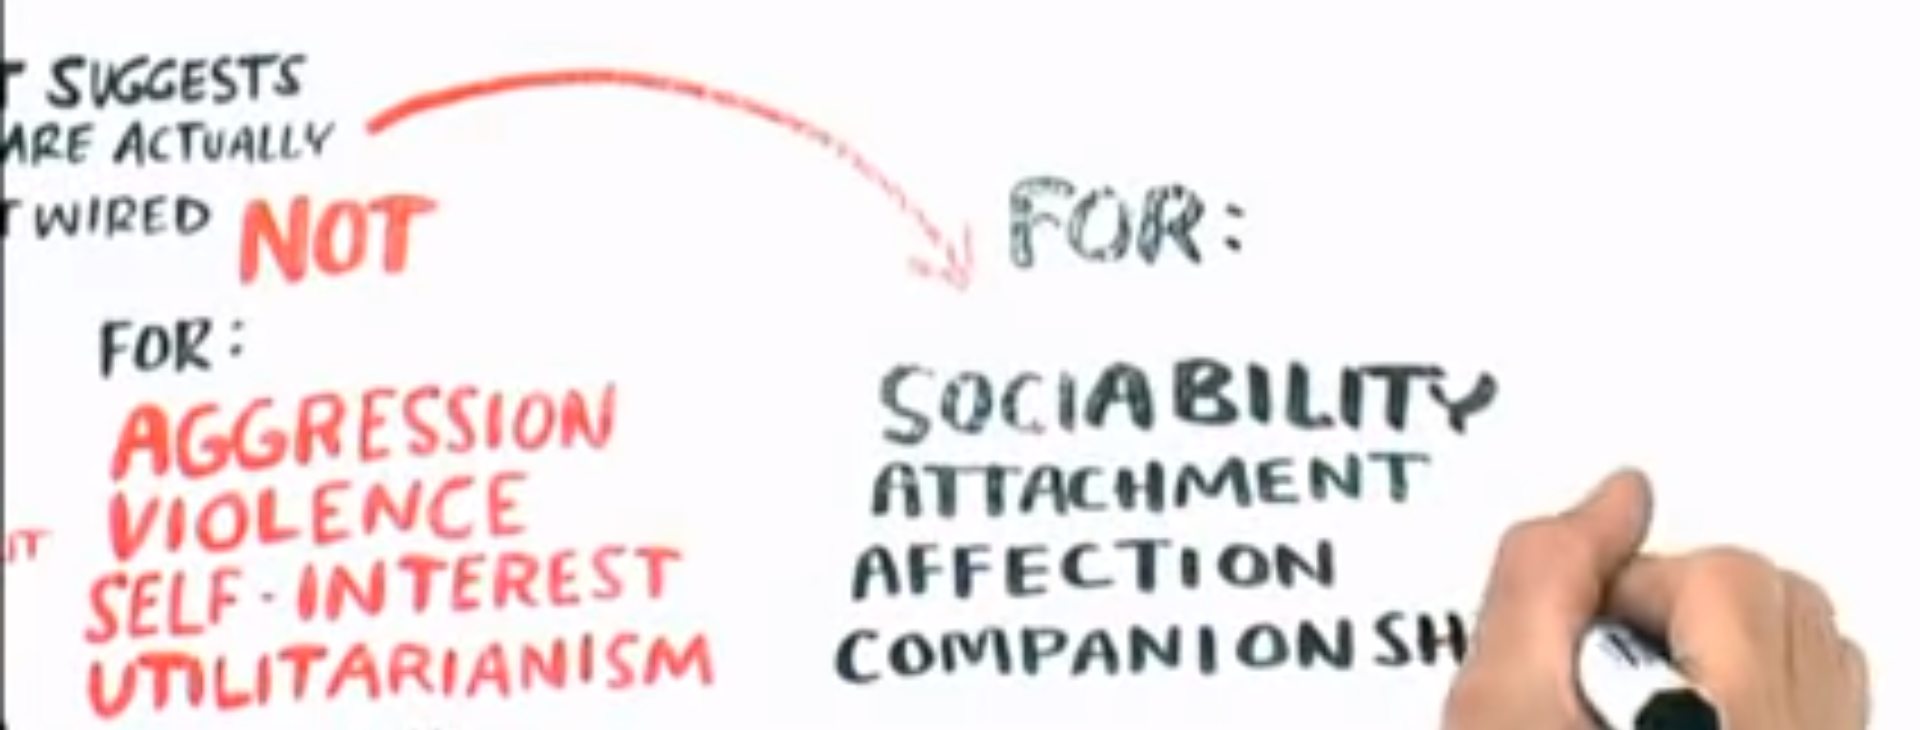 T SUGGESTS
ARE ACTUALLY
T WIRED NOT
FOR:
AGGRESSION
VIOLENCE
SELF-INTEREST
UTILITARIANISM
IT
FOR:
SOCIABILITY
ATTACHMENT
AFFECTION
COMPANIONSH